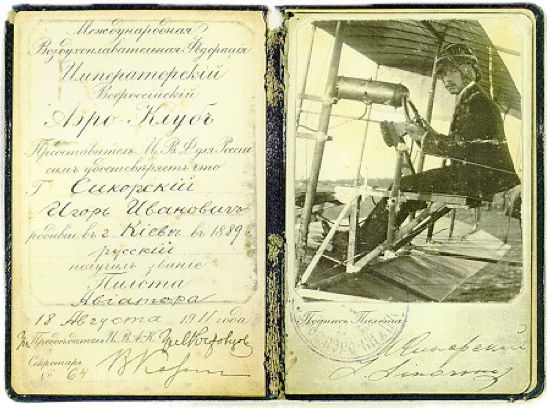 Международная
Воздухоплавательная Федерація
Императорскій
Всероссійскій
Аэро-Клубъ
Представитель М.В.Ф. для Россіи
симъ удостовѣряетъ что
Г Сикорскій
Игорь Ивановичъ
родивш въ г. Кіевѣ въ 1889 г
русскій
получилъ званіе
Пилота
Авіатора
18 Августа 1911 года
Предсѣдатель И.В.А.К.
Секретарь
№ 64
Подпись Пилота
Сикорскій